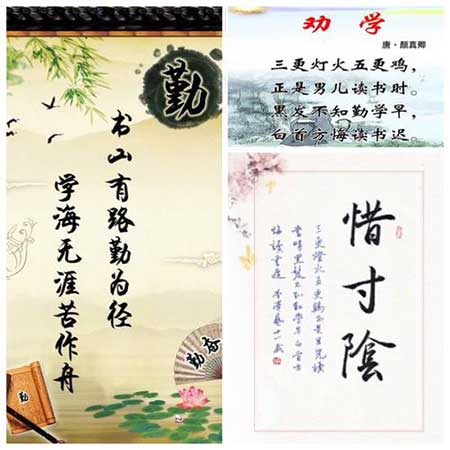 勤
书山有路勤为径
学海无涯苦作舟
勤奋
勤
劝 学
唐·颜真卿
三更灯火五更鸡，
正是男儿读书时。
黑发不知勤学早，
白首方悔读书迟。
惜寸陰
三更燈火五更鷄正是男兒讀
書時黑髮不知勤學早白首方
悔讀書遲